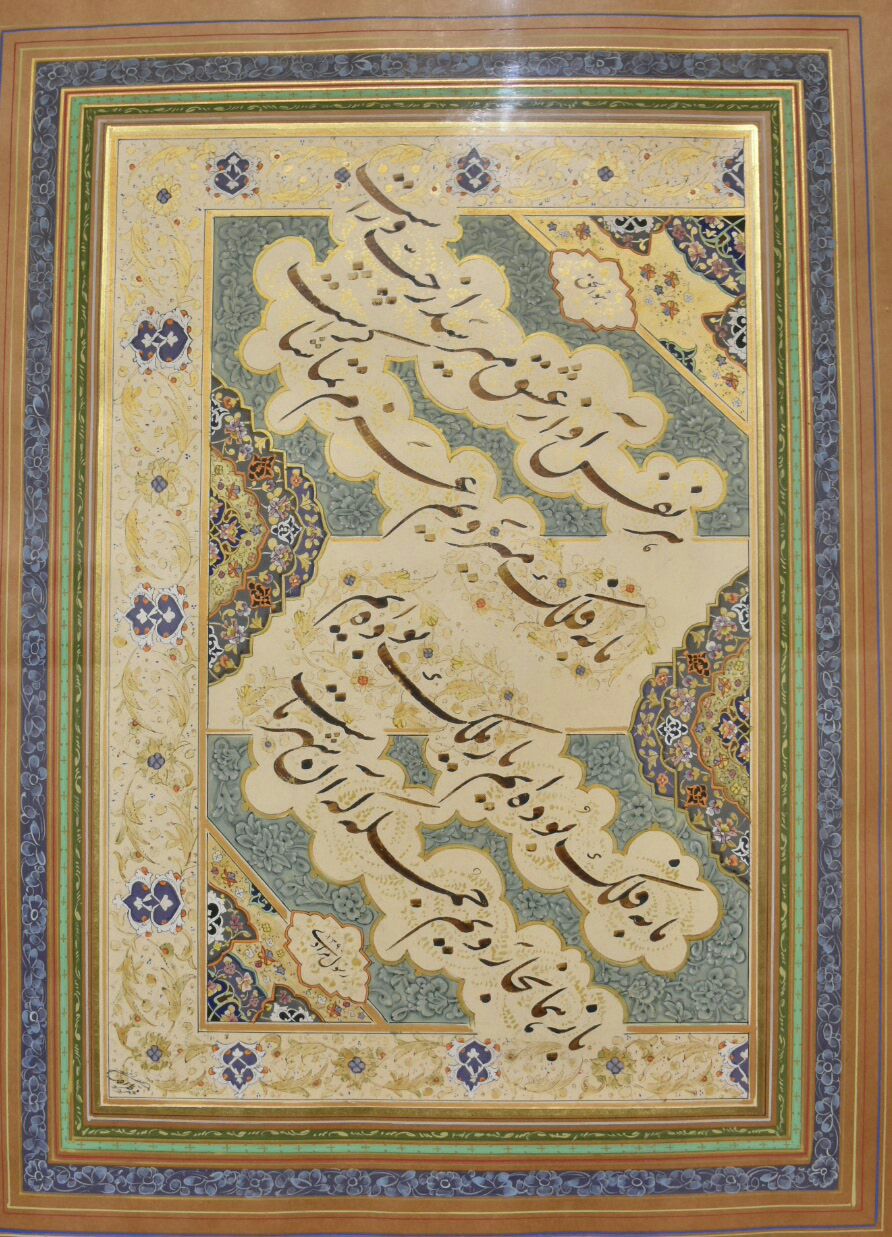 هوالحق
هر نفس آواز عشق میرسد از چپ و راست
ما به فلک میرویم عزم تماشا کراست
ما به فلک بوده‌ایم یار ملک بوده‌ایم
باز همانجا رویم جمله که آن شهر ماست
رسول مرادی